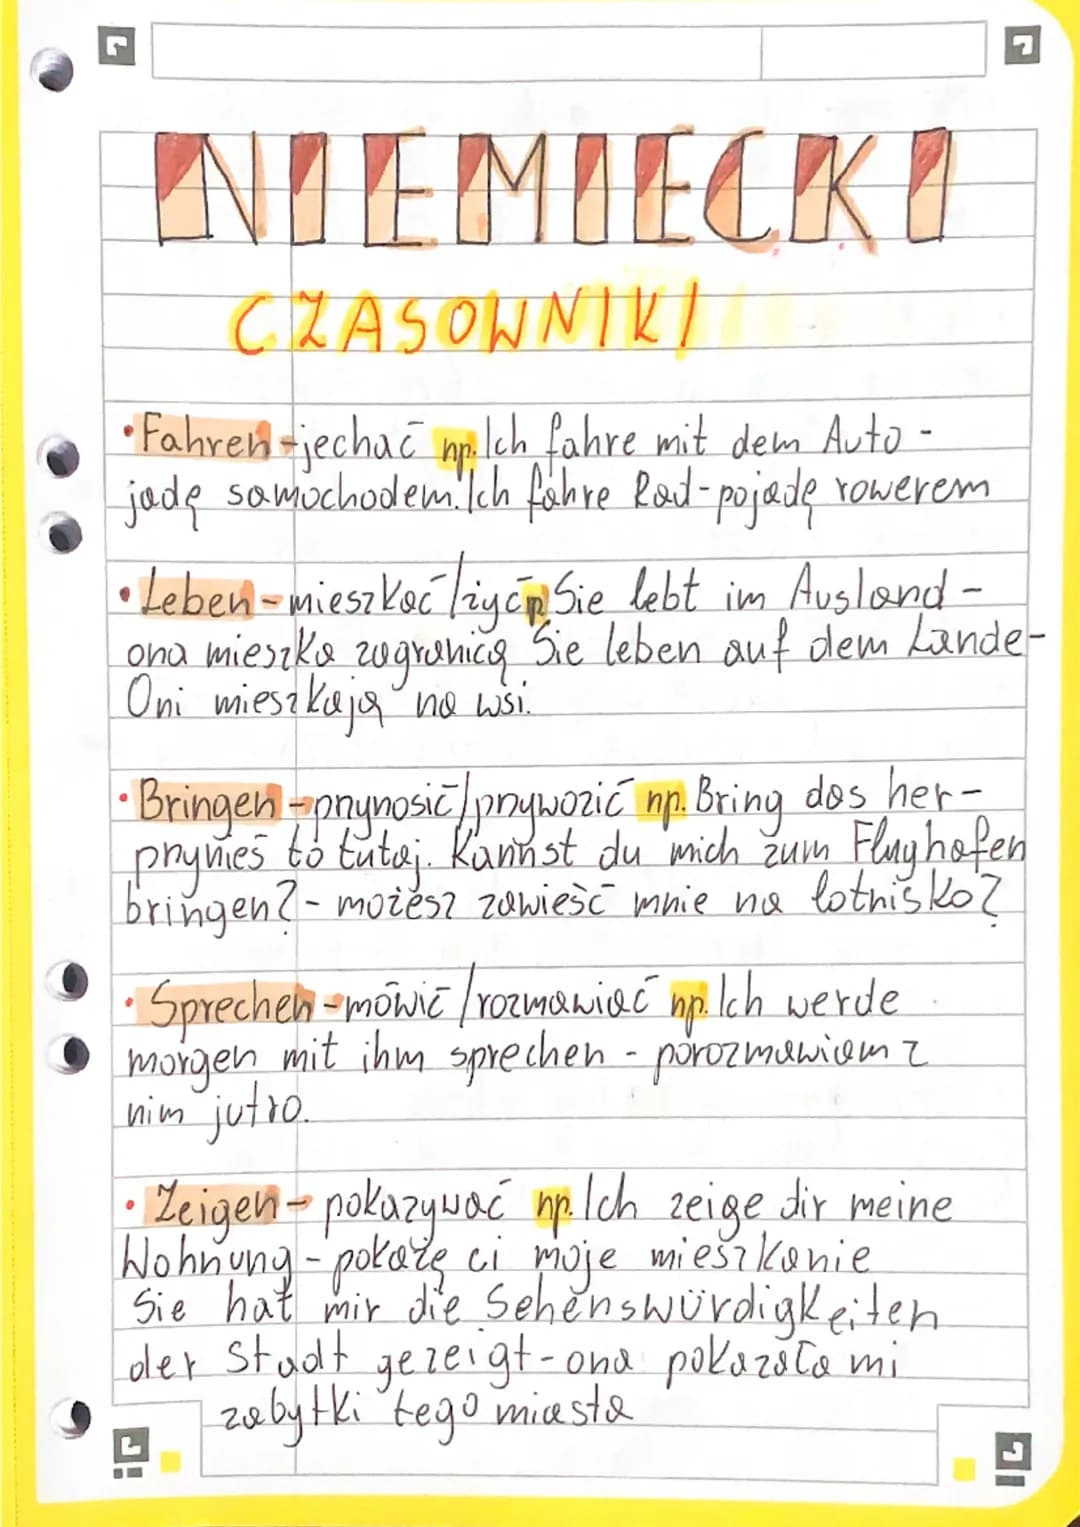 NIEMIECKI
CZASOWNIKI
•Fahren-jechać np. Ich fahre mit dem Auto -
jadę samochodem. Ich fahre Rad-pojadę rowerem
•Leben-mieszkać/żyć np Sie lebt im Ausland -
ona mieszka zagranicą Sie leben auf dem Lande-
Oni mieszkają na wsi.
•Bringen-przynosić/przywozić np. Bring das her-
przynieś to tutaj. Kannst du mich zum Flughafen
bringen? - możesz zawieść mnie na lotnisko?
•Sprechen-mówić/rozmawiać np. Ich werde
morgen mit ihm sprechen - porozmawiam z
nim jutro.
•Zeigen-pokazywać np. Ich zeige dir meine
Wohnung-pokażę ci moje mieszkanie
Sie hat mir die Sehenswürdigkeiten
der Stadt gezeigt-ona pokazała mi
zabytki tego miasta